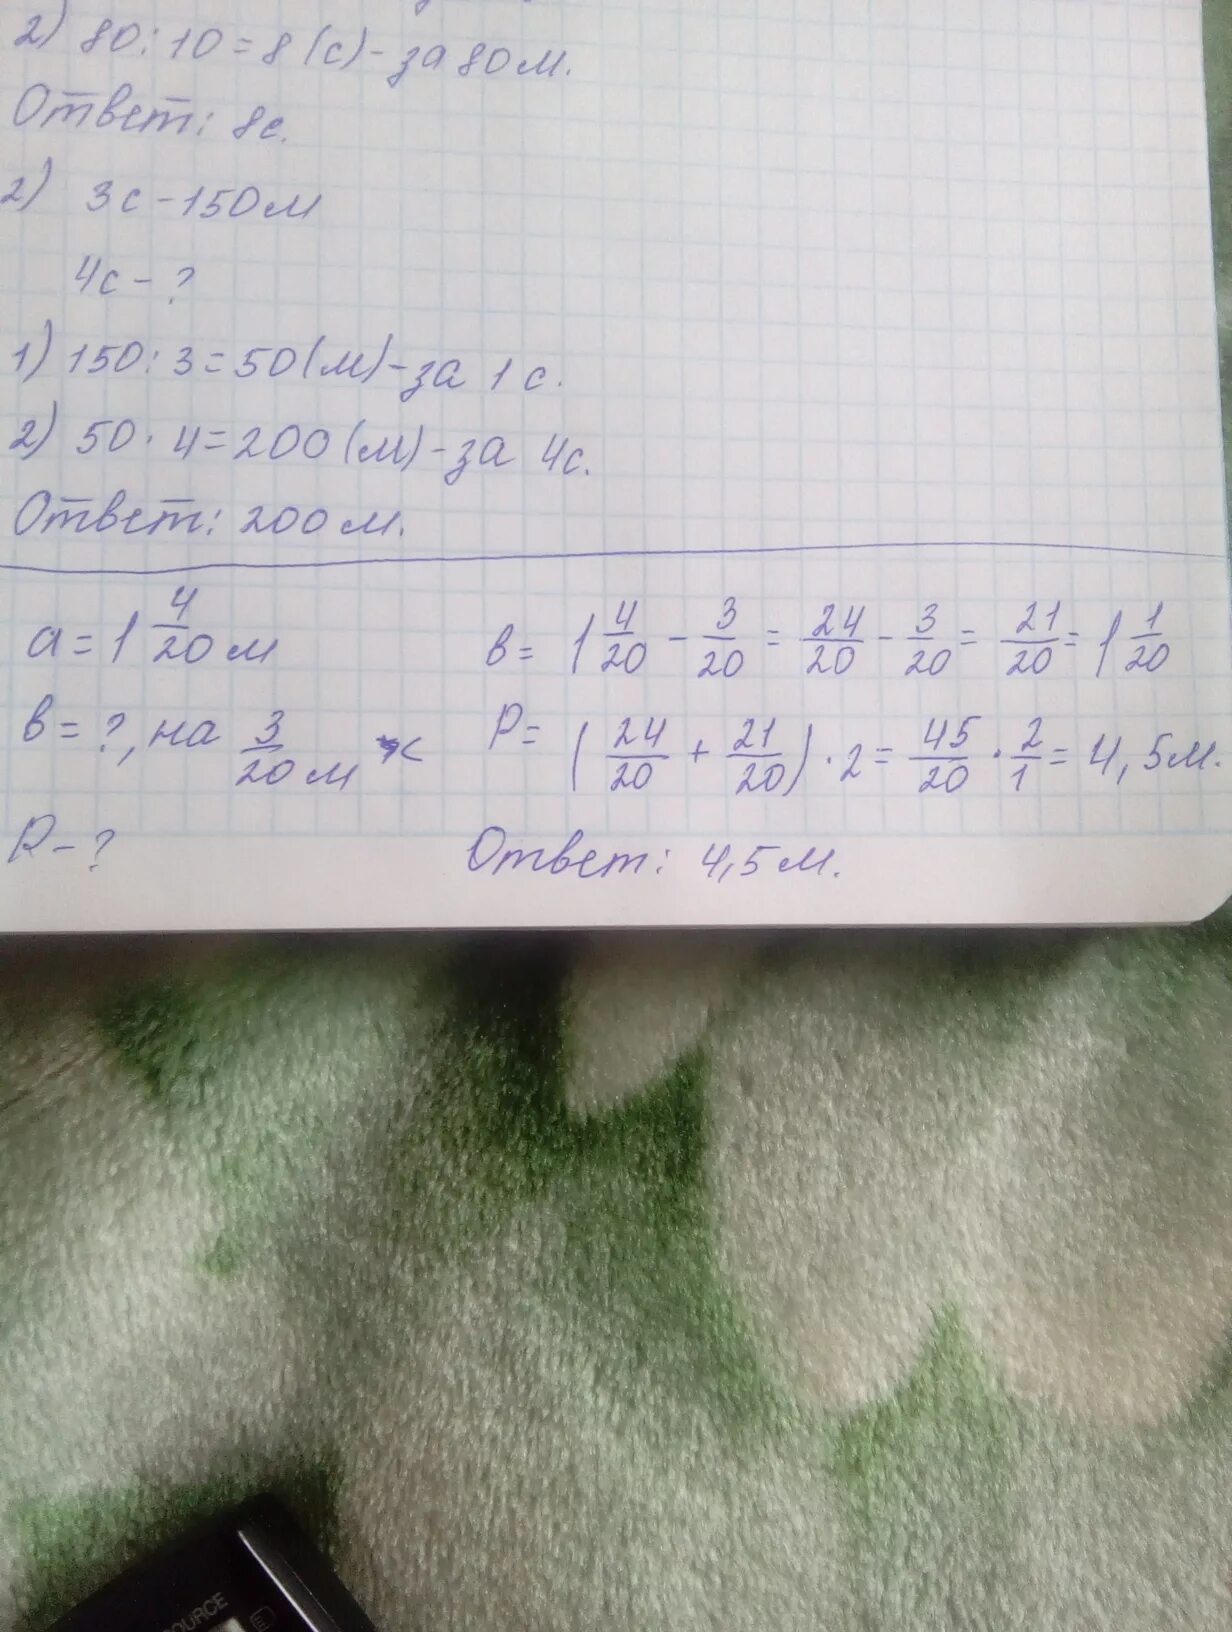 2) 80 : 10 = 8 (с) - за 80 м.
Ответ: 8с.
2) 3с - 150 м
4с - ?
1) 150 : 3 = 50 (м) - за 1 с.
2) 50 · 4 = 200 (м) - за 4с.
Ответ: 200 м.
a = 1 4/20 м
в = ?, на 3/20 м <
P - ?
в = 1 4/20 - 3/20 = 24/20 - 3/20 = 21/20 = 1 1/20
P = (24/20 + 21/20) · 2 = 45/20 · 2/1 = 4,5 м.
Ответ: 4,5 м.